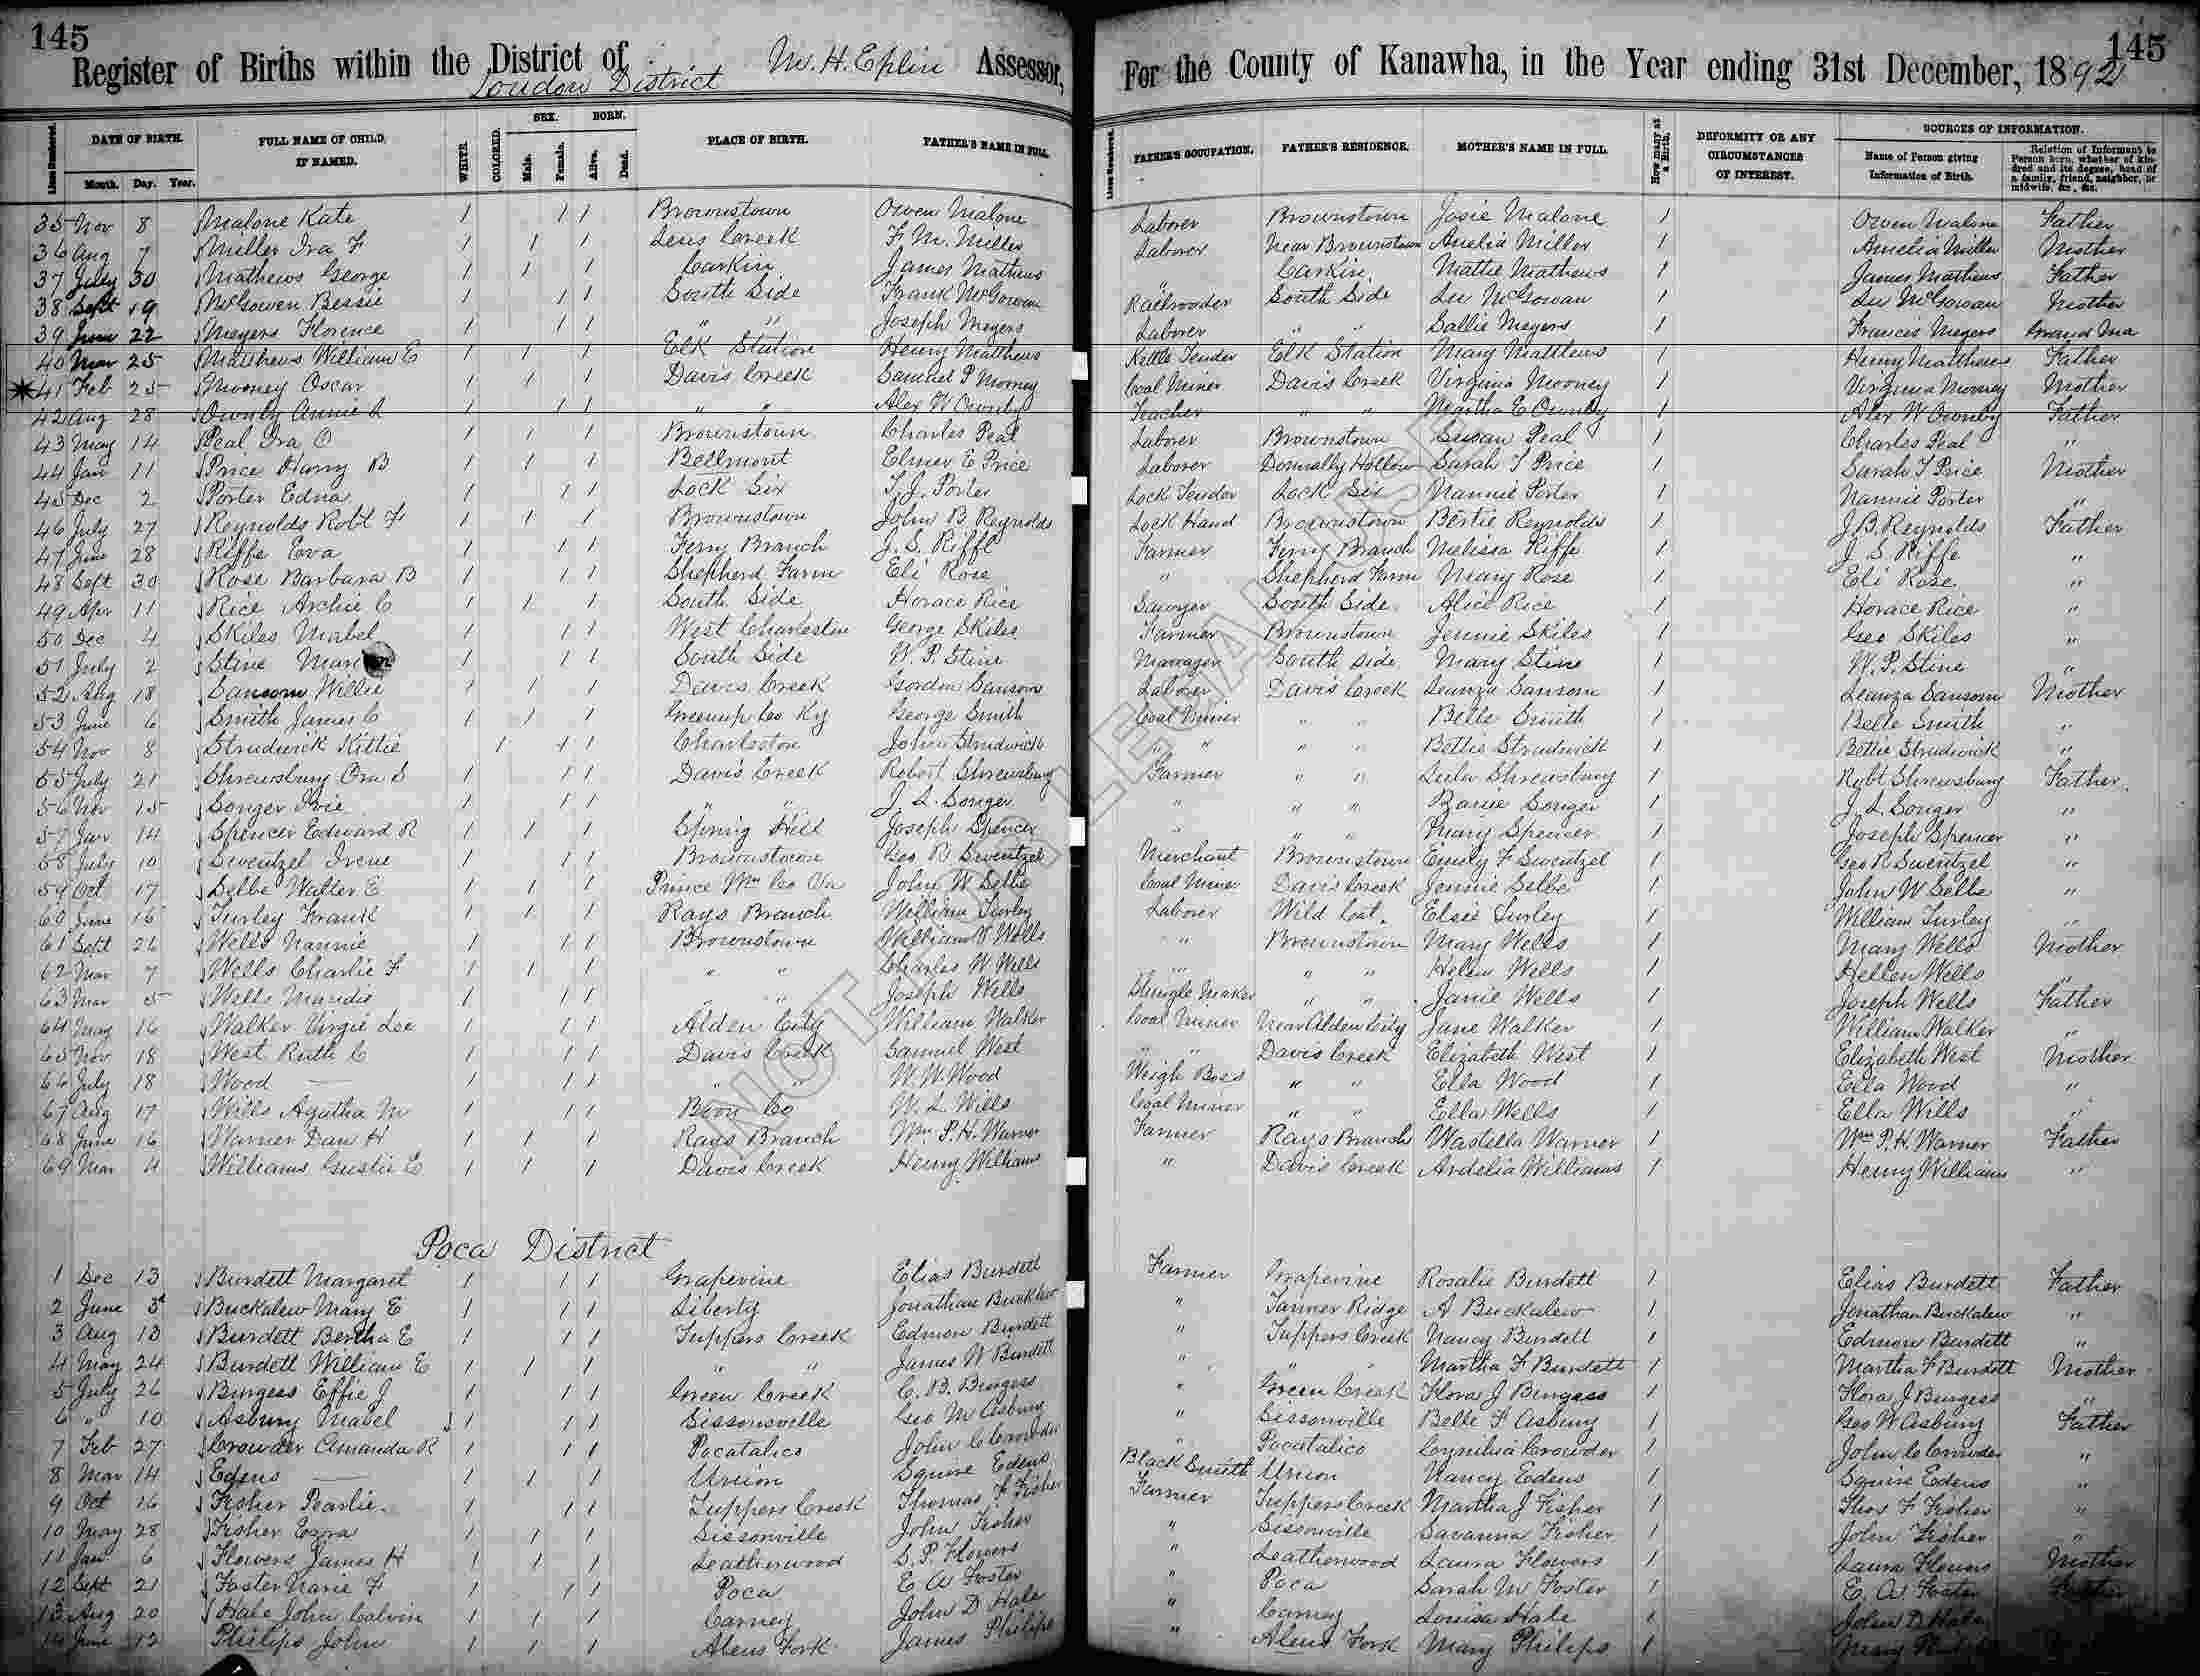 145
145
Register of Births within the District of London District M. H. Eplin Assessor, For the County of Kanawha, in the Year ending 31st December, 1892
Lines Numbered. DATE OF BIRTH. Month. Day. Year. FULL NAME OF CHILD, IF NAMED. WHITE. COLORED. SEX. Male. Female. BORN. Alive. Dead. PLACE OF BIRTH. FATHER'S NAME IN FULL. Lines Numbered. FATHER'S OCCUPATION. FATHER'S RESIDENCE. MOTHER'S NAME IN FULL. How many at a Birth. DEFORMITY OR ANY CIRCUMSTANCES OF INTEREST. SOURCES OF INFORMATION. Name of Person giving Information of Birth. Relation of Informant to Person born, whether of kindred and its degree, head of a family, friend, neighbor, or midwife, &c., &c.
35 Nov 8 Malone Kate 1 1 1 Brownstown Owen Malone Laborer Brownstown Josie Malone 1 Owen Malone Father
36 Aug 7 Miller Ira F 1 1 1 Lens Creek F. M. Miller Laborer Near Brownstown Amelia Miller 1 Amelia Miller Mother
37 July 30 Mathews George 1 1 1 Larkin James Mathews " Larkin Mattie Mathews 1 James Mathews Father
38 Sept 19 McGowen Bessie 1 1 1 South Side Frank McGowan Railroader South Side Lee McGowan 1 Lee McGowan Mother
39 June 22 Meyers Florence 1 1 1 " " Joseph Meyers Laborer " " Sallie Meyers 1 Frances Meyers Grand Ma
40 Mar 25 Matthews William E 1 1 1 Elk Station Henry Matthews Kettle Tender Elk Station Mary Matthews 1 Henry Matthews Father
41 Feb 25 Mooney Oscar 1 1 1 Davis Creek Samuel P Mooney Coal Miner Davis Creek Virginia Mooney 1 Virginia Mooney Mother
42 Aug 28 Ownby Annie L 1 1 1 " " Alex W Ownby Teacher " " Martha E Ownby 1 Alex W Ownby Father
43 May 14 Peal Ira O 1 1 1 Brownstown Charles Peal Laborer Brownstown Susan Peal 1 Charles Peal "
44 Jan 11 Price Harry B 1 1 1 Bellmont Elmer E Price Laborer Donnally Hollow Sarah T Price 1 Sarah T Price Mother
45 Dec 2 Porter Edna 1 1 1 Lock Six T. J. Porter Lock Tender Lock Six Nannie Porter 1 Nannie Porter "
46 July 27 Reynolds Robt F 1 1 1 Brownstown John B Reynolds Lock Hand Brownstown Bertie Reynolds 1 J. B. Reynolds Father
47 June 28 Riffe Eva 1 1 1 Ferry Branch J. S. Riffe Farmer Ferry Branch Melissa Riffe 1 J. S. Riffe "
48 Sept 30 Rose Barbara B 1 1 1 Shepherd Farm Eli Rose " Shepherd Farm Mary Rose 1 Eli Rose "
49 Apr 11 Rice Archie C 1 1 1 South Side Horace Rice Sawyer South Side Alice Rice 1 Horace Rice "
50 Dec 4 Skiles Mabel 1 1 1 West Charleston George Skiles Farmer Brownstown Jennie Skiles 1 Geo Skiles "
51 July 2 Stine 1 1 1 South Side W. P. Stine Manager South Side Mary Stine 1 W. P. Stine "
52 Aug 18 Sansom Willie 1 1 1 Davis Creek Gordon Sansom Laborer Davis Creek Leanza Sansom 1 Leanza Sansom Mother
53 June 6 Smith James C 1 1 1 Greenup Co Ky George Smith Coal Miner " " Belle Smith 1 Belle Smith "
54 Nov 8 Strudwick Kittie 1 1 1 Charleston John Strudwick " " " " Bettie Strudwick 1 Bettie Strudwick "
55 July 21 Shrewsbury Ora S 1 1 1 Davis Creek Robert Shrewsbury Farmer " " Lula Shrewsbury 1 Robt Shrewsbury Father
56 Nov 15 Songer Ivie 1 1 1 " " J. L. Songer " " " Songer 1 J. L. Songer "
57 Jan 14 Spencer Edward R 1 1 1 Spring Hill Joseph Spencer " " " Mary Spencer 1 Joseph Spencer "
58 July 10 Swentzel Irene 1 1 1 Brownstown Geo R Swentzel Merchant Brownstown Emily F Swentzel 1 Geo R Swentzel "
59 Oct 17 Selbe Walter E 1 1 1 Prince Wm Co Va John W Selbe Coal Miner Davis Creek Jennie Selbe 1 John W Selbe "
60 June 16 Turley Frank 1 1 1 Rays Branch William Turley Laborer Wild Cat Elsie Turley 1 William Turley "
61 Sept 26 Wells Nannie 1 1 1 Brownstown William Wells " Brownstown Mary Wells 1 Mary Wells Mother
62 Mar 7 Wells Charlie F 1 1 1 " " Charles W Wells " " " Helen Wells 1 Hellen Wells "
63 Mar 5 Wells Maudie 1 1 1 " " Joseph Wells Shingle Maker " " Janie Wells 1 Joseph Wells Father
64 May 16 Walker Virgie Lee 1 1 1 Alden City William Walker Coal Miner Near Alden City Jane Walker 1 William Walker "
65 Nov 18 West Ruth C 1 1 1 Davis Creek Samuel West " " Davis Creek Elizabeth West 1 Elizabeth West Mother
66 July 18 Wood 1 1 1 " " W. W. Wood Weigh Boss " " Ella Wood 1 Ella Wood "
67 Aug 17 Wills Agatha M 1 1 1 Boon Co W. L. Wills Coal Miner " " Ella Wells 1 Ella Wills "
68 June 16 Warner Dan H 1 1 1 Rays Branch Wm P. H. Warner Farmer Rays Branch Wastella Warner 1 Wm P. H. Warner Father
69 Mar 4 Williams Gustie E 1 1 1 Davis Creek Henry Williams " Davis Creek Ardelia Williams 1 Henry Williams "
Poca District
1 Dec 13 Burdett Margaret 1 1 1 Grapevine Elias Burdett Farmer Grapevine Rosalie Burdett 1 Elias Burdett Father
2 June 3 Buckalew Mary E 1 1 1 Liberty Jonathan Bucklew " Tanner Ridge A Buckalew 1 Jonathan Buckalew "
3 Aug 13 Burdett Bertha E 1 1 1 Tuppers Creek Edmon Burdett " Tuppers Creek Nancy Burdett 1 Edmon Burdett "
4 May 24 Burdett William E 1 1 1 " " James W Burdett " " " Martha F Burdett 1 Martha F Burdett Mother
5 July 26 Burgess Effie J 1 1 1 Green Creek C. B. Burgess " Green Creek Flora J Burgess 1 Flora J Burgess "
6 " 10 Asbury Mabel 1 1 1 Sissonsville Geo M Asbury " Sissonville Belle F Asbury 1 Geo W Asbury Father
7 Feb 27 Crowder Amanda R 1 1 1 Pocatalico John C Crowder " Pocatalico Cynthia Crowder 1 John C Crowder "
8 Mar 14 Edens 1 1 1 Union Squire Edens Black Smith Union Nancy Edens 1 Squire Edens "
9 Oct 16 Fisher Pearlie 1 1 1 Tuppers Creek Thomas F Fisher Farmer Tuppers Creek Martha J Fisher 1 Thos F Fisher "
10 May 28 Fisher Ezra 1 1 1 Sissonville John Fisher " Sissonville Savanna Fisher 1 John Fisher "
11 Jan 6 Flowers James H 1 1 1 Leatherwood S. P. Flowers " Leatherwood Laura Flowers 1 Laura Flowers Mother
12 Sept 21 Foster Narie F 1 1 1 Poca E A Foster " Poca Sarah M Foster 1 E. A. Foster Father
13 Aug 20 Hale John Calvin 1 1 1 Carney John D Hale " Carney Louisa Hale 1 John D Hale
14 June 12 Philips John 1 1 1 Alens Fork James Philips " Alens Fork Mary Philips 1 Mary
NOT FOR LEGAL USE